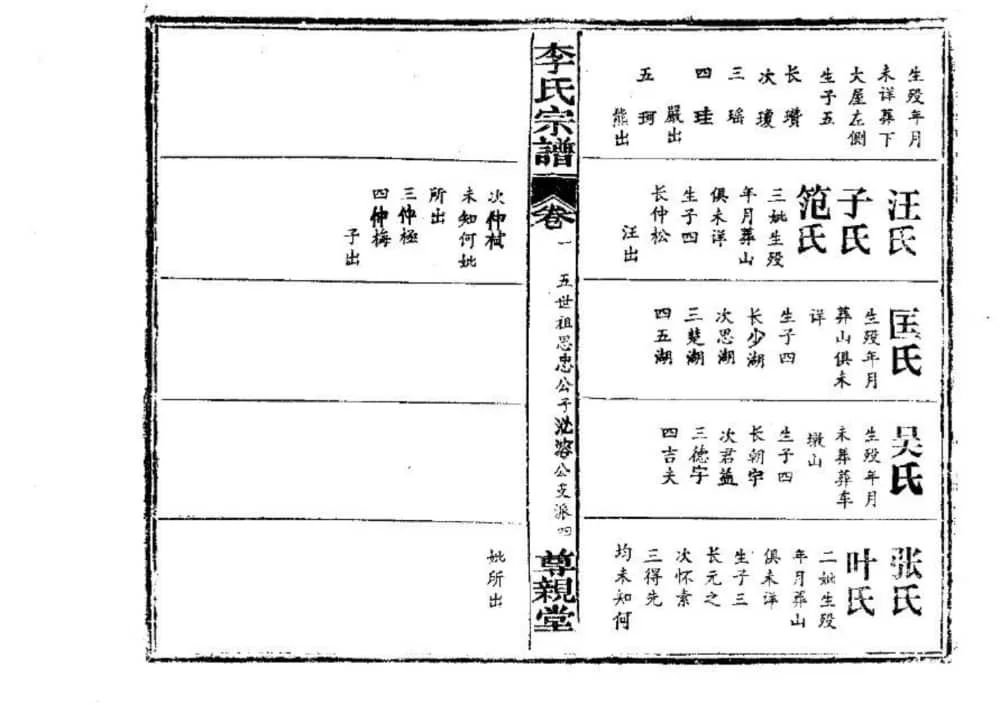 生殁年月
未详葬下
大屋左侧
生子五
长瓒
次瓊
三瑶
四珪
嚴出
五珂
熊出
汪氏
子氏
范氏
三妣生殁
年月葬山
俱未详
生子四
长仲松
汪出
匡氏
生殁年月
葬山俱未
详
生子四
长少湖
次思湖
三楚湖
四五湖
吴氏
生殁年月
未葬葬车
墩山
生子四
长朝宁
次君益
三德宇
四吉夫
张氏
叶氏
二妣生殁
年月葬山
俱未详
生子三
长元之
次怀素
三得先
均未知何
李氏宗譜
卷一
五世祖思忠公子沈溶公支派四
尊親堂
次仲栻
未知何妣
所出
三仲極
四仲梅
子出
妣所出